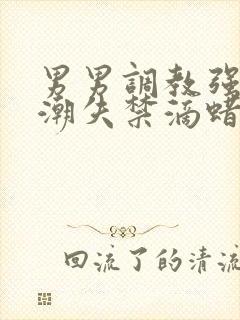 男男調教强
潮失禁滴蜡
回流了的清流